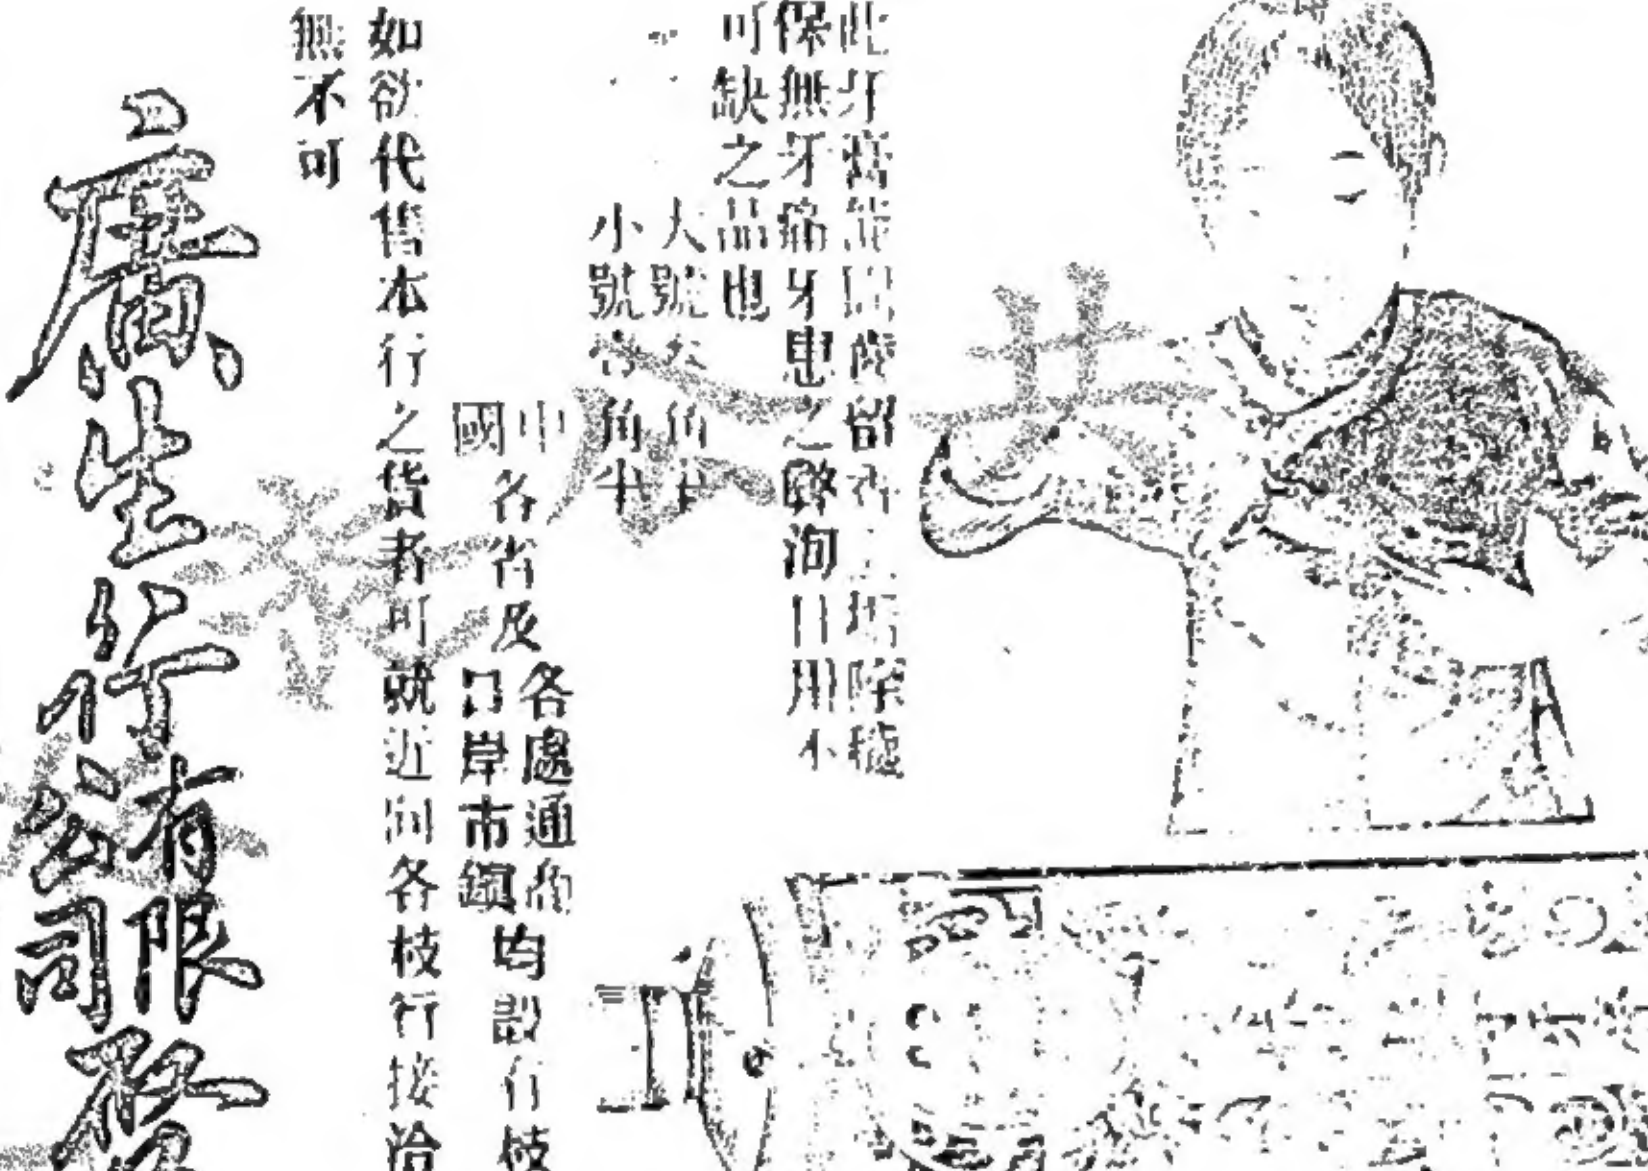 此牙膏能固齒留香 除穢
保無牙痛牙患之弊洵日用不
可缺之品也
大號 角半
小號 角半
中國各省及各處通商口岸市鎮均設有枝
如欲代售本行之貨者可就近向各枝行接洽
無不可
廣生行有限公司